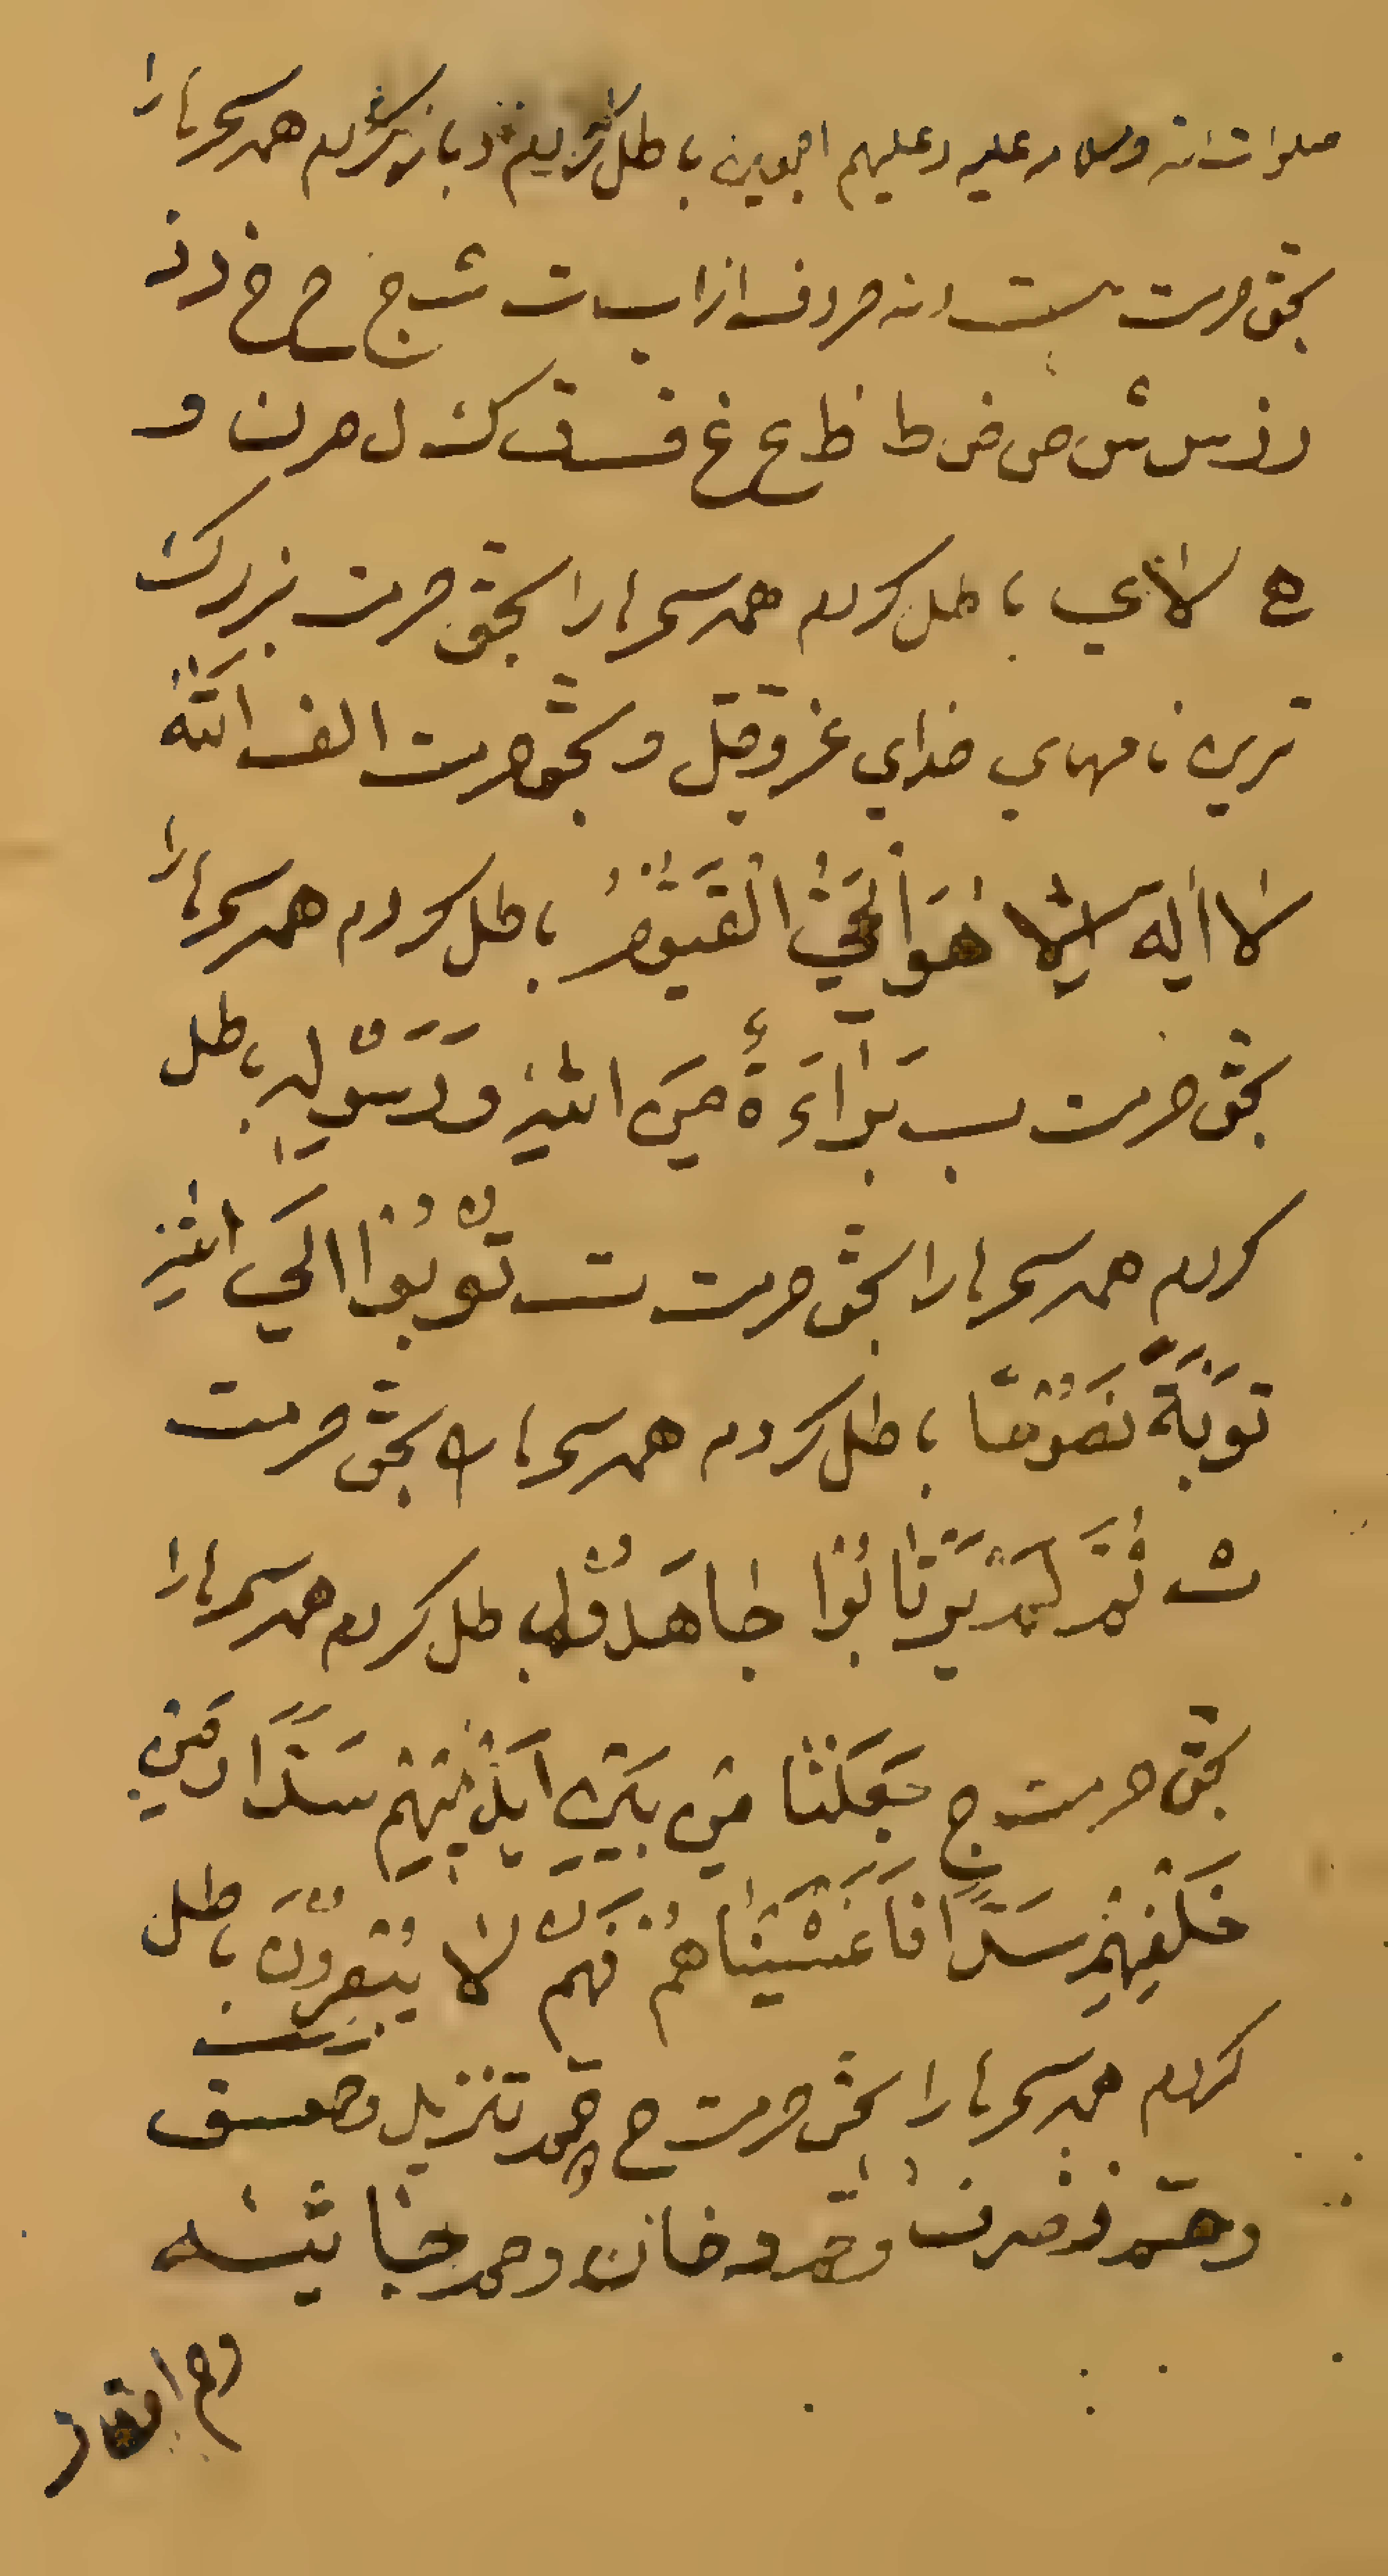 صلوات الله وسلامه علیه وعلیهم اجمعین باطل کردم همه سحرها را
بحق حرمت بیست ونه حروف از ا ب ت ث ج ح خ د ذ
ر ز س ش ص ض ط ظ ع غ ف ق ک ل م ن و
ه لا ی باطل کردم همه سحرها را بحق حرمت بزرک
ترین نامهای خدای عز وجل و بحق حرمت الف اَللّٰهُ
لا اله الا هُوَ الْحَيُّ الْقَيُّوْمُ باطل کردم همه سحرها را
بحق حرمت ب بَرَآءَةٌ مِنَ اللهِ وَرَسُوْلِهِ باطل
کردم همه سحرها را بحق حرمت ت تُوْبُوْا اِلَي اللهِ
تَوْبَةً نَصُوْحًا باطل کردم همه سحرها را بحق حرمت
ث ثُمَّ لَمْ يَرْتَابُوْا جَاهَدُوْا باطل کردم همه سحرها را
بحق حرمت ج جَعَلْنَا مِنْ بَيْنِ اَيْدِيْهِمْ سَدًّا وَمِنْ
خَلْفِهِمْ سَدًّا فَاَغْشَيْنَاهُمْ فَهُمْ لا يُبْصِرُوْنَ باطل
کردم همه سحرها را بحق حرمت ح حم تنزیل وحمعسق
وحم زخرف وحم دخان وحم جاثیه